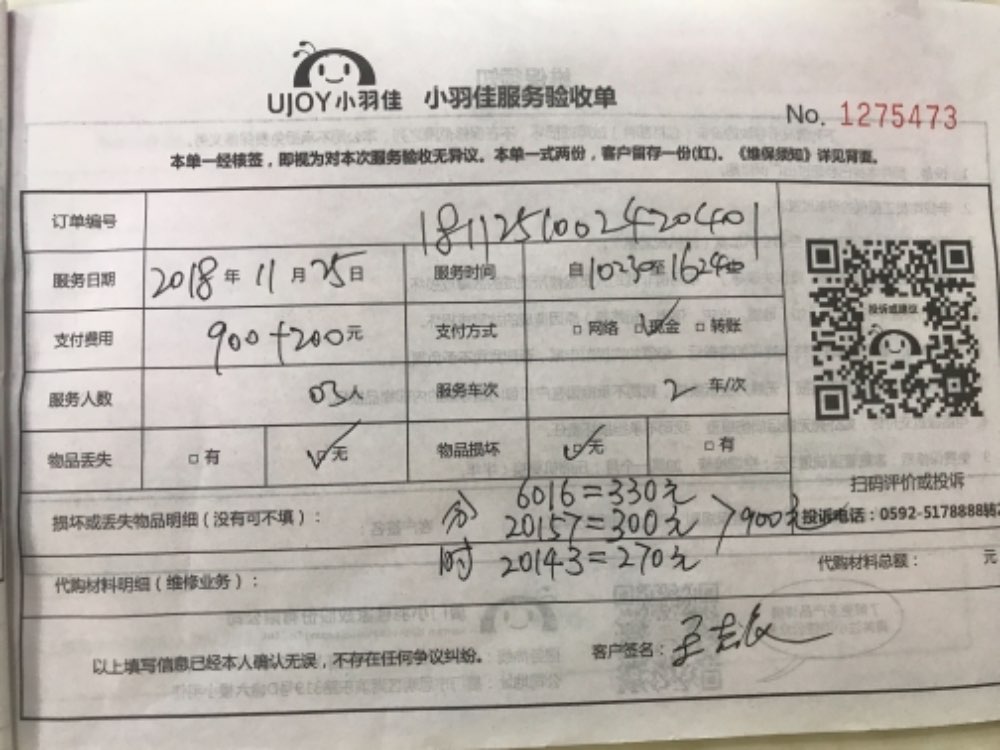 UJOY小羽佳 小羽佳服务验收单
No. 1275473
本单一经核签，即视为对本次服务验收无异议。本单一式两份，客户留存一份(红)。《维保须知》详见背面。
订单编号 1811251002420401
服务日期 2018年11月25日 服务时间 自10230至16240
投诉或建议
支付费用 900+200元 支付方式 □网络 ☑现金 □转账
服务人数 03人 服务车次 2 车/次
物品丢失 □有 ☑无 物品损坏 ☑无 □有
扫码评价或投诉
损坏或丢失物品明细（没有可不填）：
分 6016=330元
20157=300元 >900元
时 20143=270元
投诉电话：0592-5178888转2
代购材料明细（维修业务）： 代购材料总额： 元
以上填写信息已经本人确认无误，不存在任何争议纠纷。 客户签名：